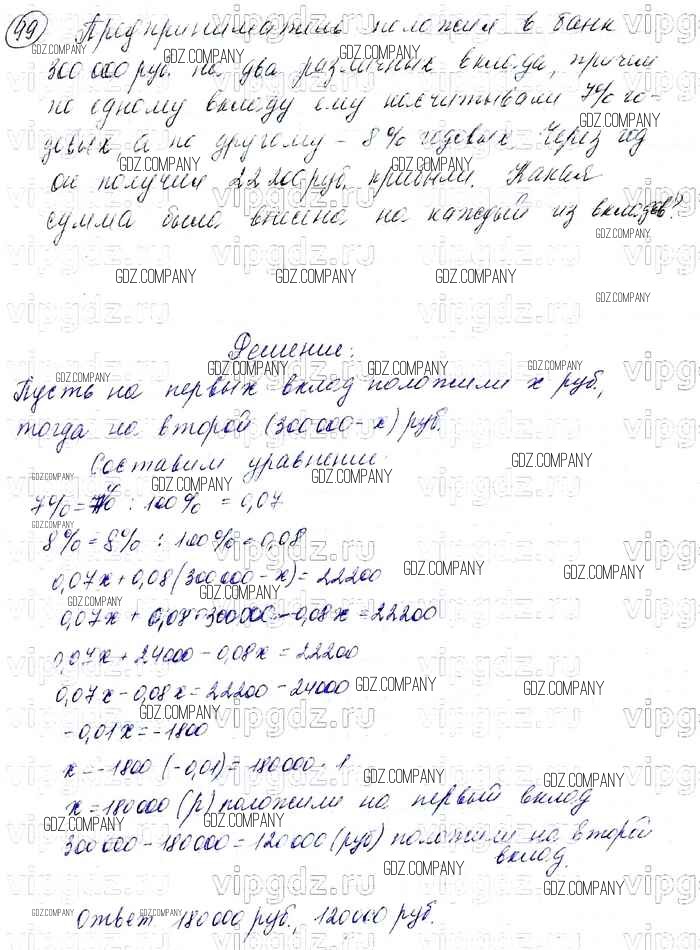 99 Предприниматель положил в банк
300 000 руб. на два различных вклада, причем
по одному вкладу ему насчитывали 7% го-
довых, а по другому – 8% годовых. Через год
он получил 22 200 руб. прибыли. Какая
сумма была внесена на каждый из вкладов?
Решение:
Пусть на первых вклад положили x руб,
тогда на второй (300000-x) руб.
Составим уравнение:
7% = : 100% = 0,07
8% = 8% : 100% = 0,08
0,07x + 0,08(300000 - x) = 22200
0,07x + 0,08·300000 - 0,08x = 22200
0,07x + 24000 - 0,08x = 22200
0,07x - 0,08x = 22200 - 24000
-0,01x = -1800
x = -1800 (-0,01) = 180000 · 1
x = 180000 (р) положили на первый вклад
300000 - 180000 = 120000 (руб) положили на второй
вклад.
Ответ 180000 руб., 120000 руб.
GDZ.COMPANY
vipgdz.ru